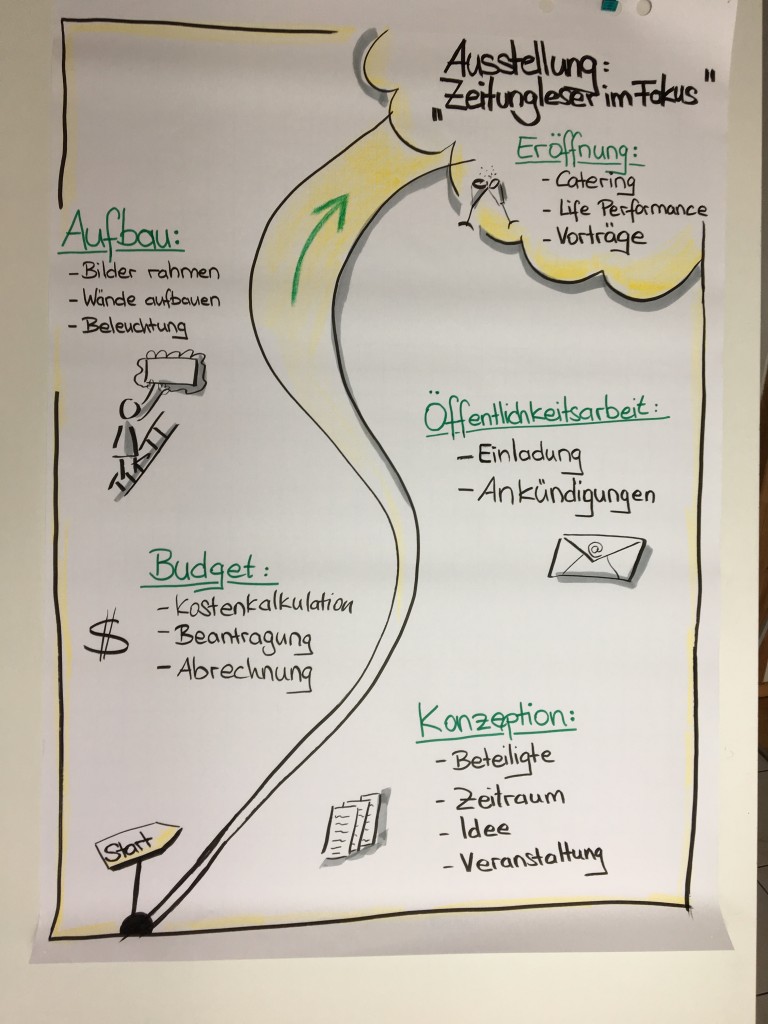 Ausstellung:
„Zeitungleser im Fokus"
Eröffnung:
- Catering
- Life Performance
- Vorträge
Aufbau:
- Bilder rahmen
- Wände aufbauen
- Beleuchtung
Öffentlichkeitsarbeit:
- Einladung
- Ankündigungen
@
Budget:
$
- Kostenkalkulation
- Beantragung
- Abrechnung
Konzeption:
- Beteiligte
- Zeitraum
- Idee
- Veranstaltung
Start